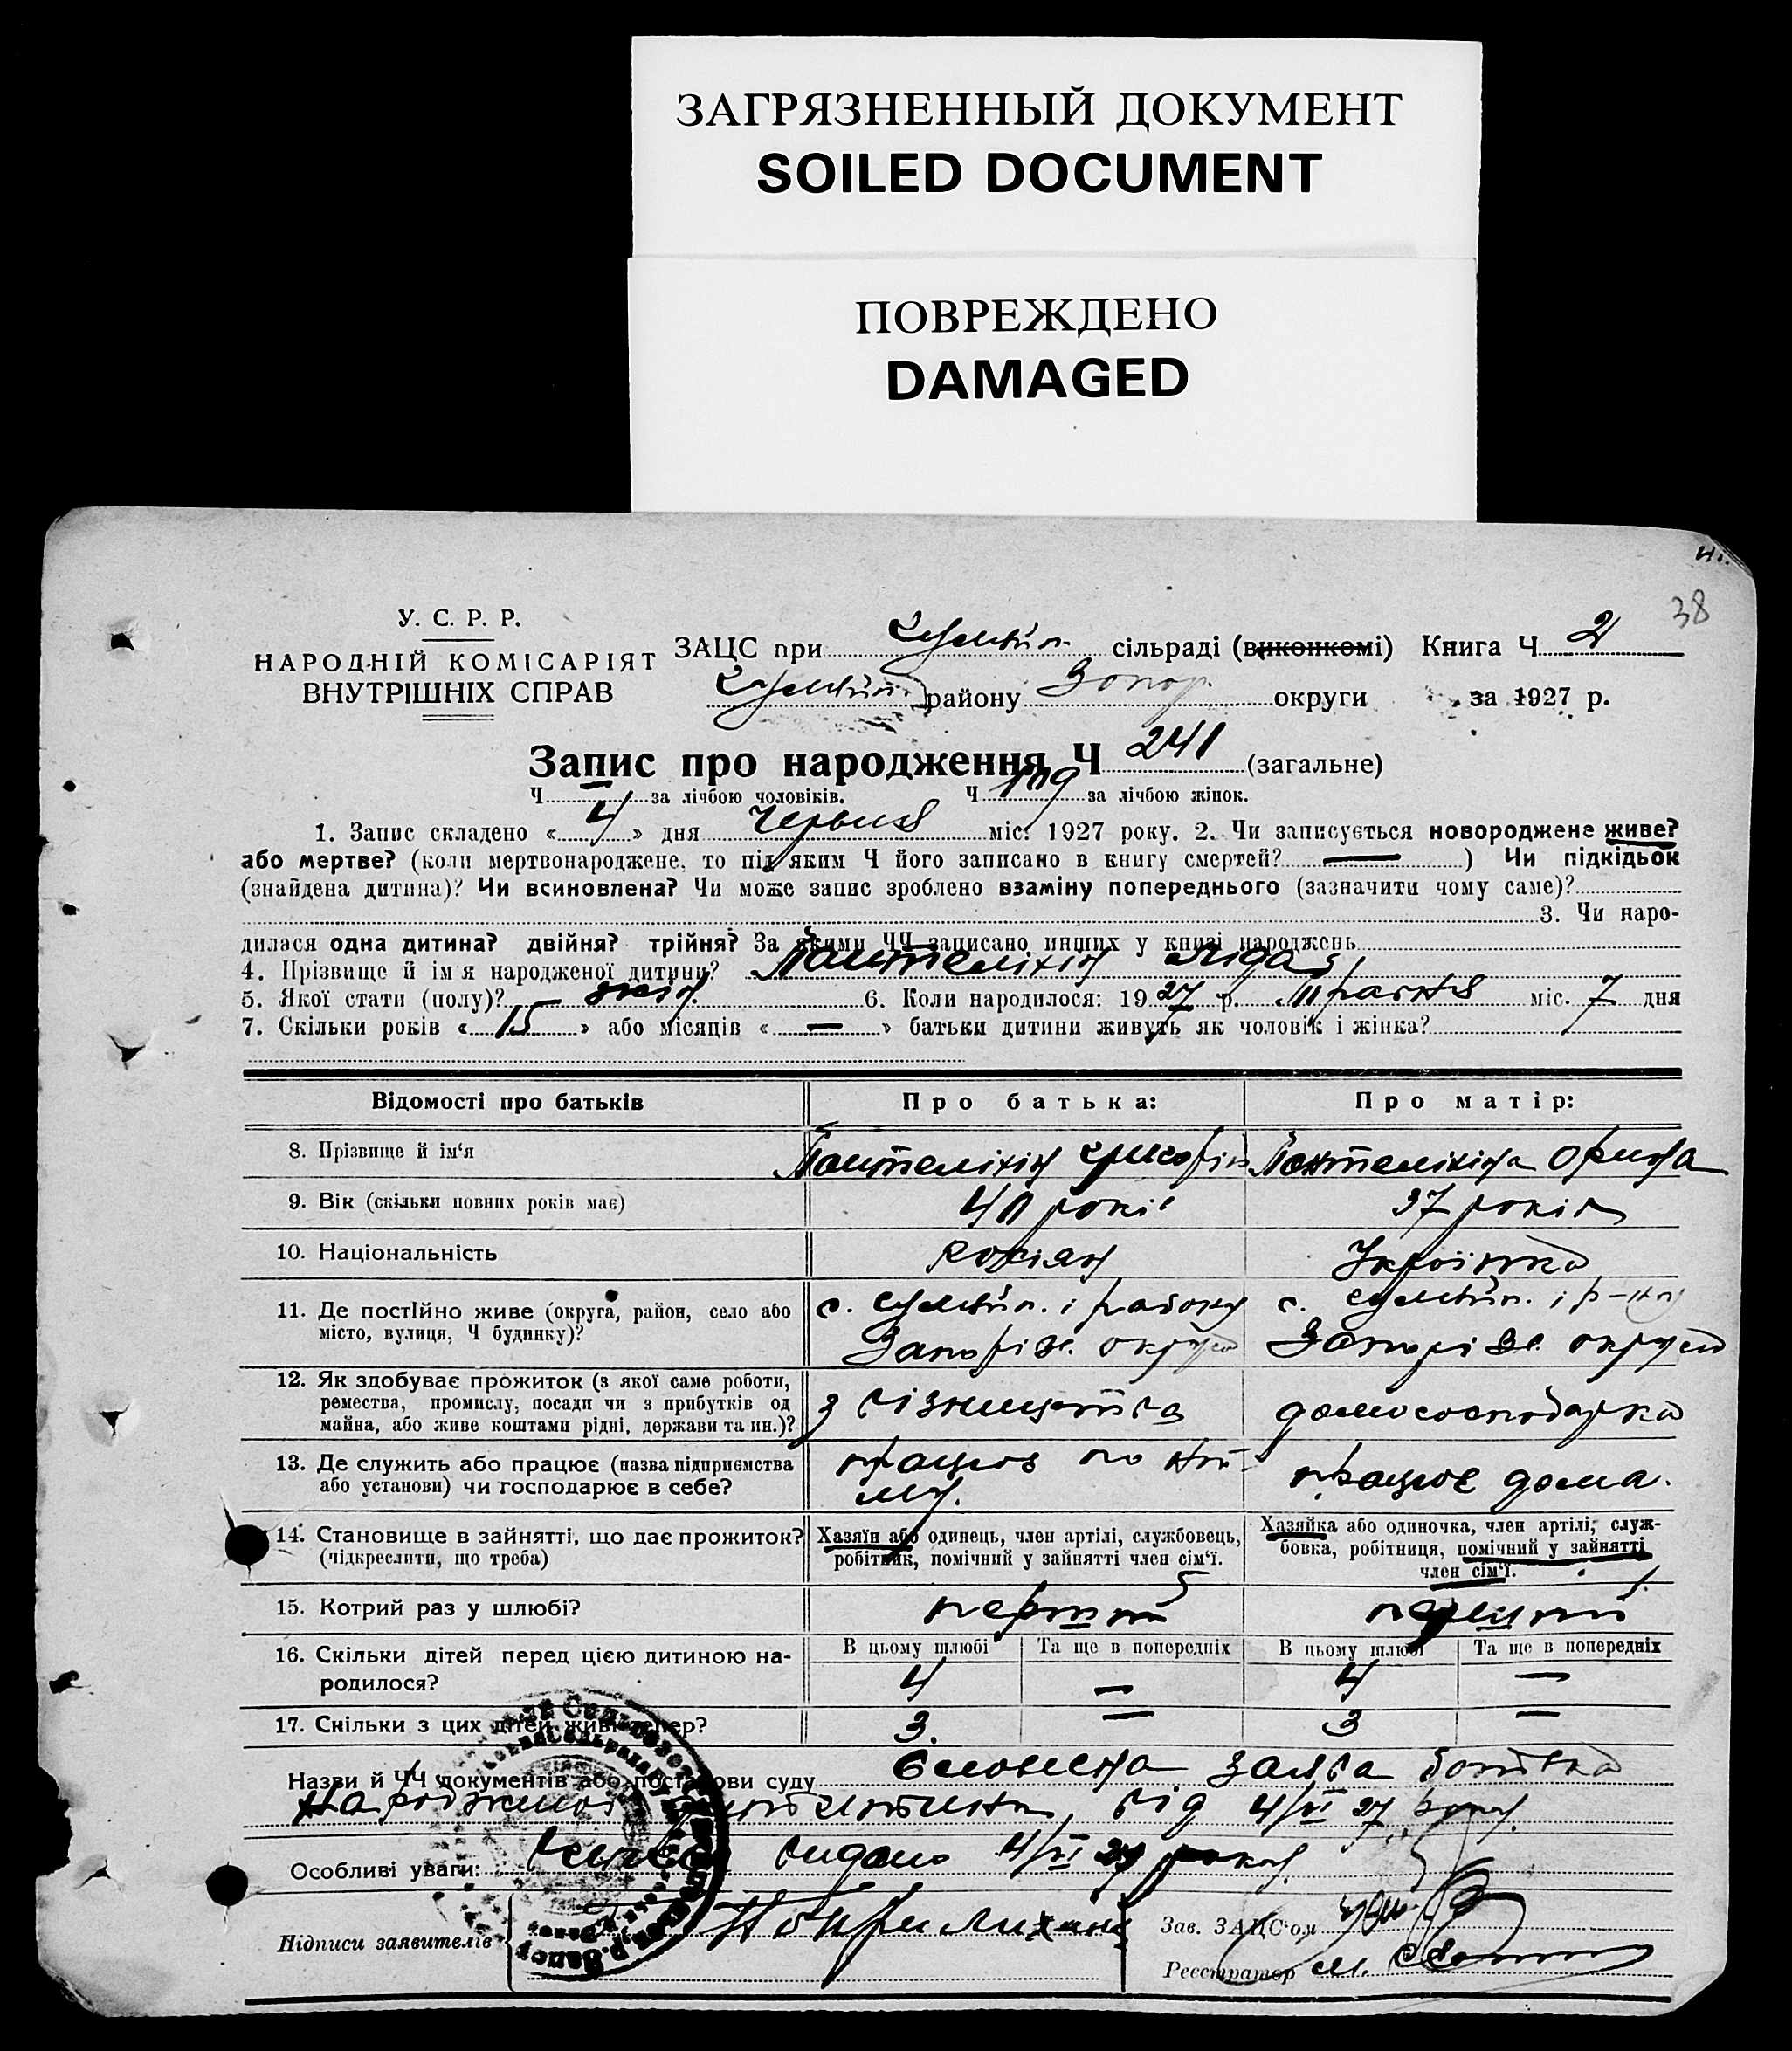 ЗАГРЯЗНЕННЫЙ ДОКУМЕНТ
SOILED DOCUMENT
ПОВРЕЖДЕНО
DAMAGED
38
У. С. Р. Р.
НАРОДНІЙ КОМІСАРІЯТ
ВНУТРІШНІХ СПРАВ
ЗАЦС при сільраді (виконкомі) Книга Ч 2
району Запор. округи за 1927 р.
Запис про народження Ч 241 (загальне)
Ч — за лічбою чоловіків. Ч 109 за лічбою жінок.
1. Запис складено «4» дня Червня міс. 1927 року. 2. Чи записується новороджене живе?
або мертве? (коли мертвонароджене, то під яким Ч його записано в книгу смертей? — ) Чи підкідьок
(знайдена дитина)? Чи всиновлена? Чи може запис зроблено взаміну попереднього (зазначити чому саме)?
3. Чи наро-
дилася одна дитина? двійня? трійня? За якими ЧЧ записано инших у книзі народжень
4. Прізвище й ім'я народженої дитини? Пантеліхін Ліда
5. Якої стати (полу)? жін. 6. Коли народилося: 1927 р. Травня міс. 7 дня
7. Скільки років «15» або місяців «—» батьки дитини живуть як чоловік і жінка?
Відомості про батьків
Про батька:
Про матір:
8. Прізвище й ім'я Пантеліхін Пантеліхіна Орина
9. Вік (скільки повних років має) 40 років 37 років
10. Національність Росіян Українка
11. Де постійно живе (округа, район, село або
місто, вулиця, Ч будинку)?
с. і району с. і р-ну
Запоріз. округи Запоріз. округи
12. Як здобуває прожиток (з якої саме роботи,
ремества, промислу, посади чи з прибутків од
майна, або живе коштами рідні, держави та ин.)?
з візництва домогосподарка
13. Де служить або працює (назва підприємства
або установи) чи господарює в себе?
працює по най-
му. працює дома.
14. Становище в зайнятті, що дає прожиток?
(підкреслити, що треба)
Хазяїн або одинець, член артілі, службовець,
робітник, помічний у зайнятті член сім'ї.
Хазяйка або одиночка, член артілі, служ-
бовка, робітниця, помічний у зайнятті
член сім'ї.
15. Котрий раз у шлюбі? перший перший
16. Скільки дітей перед цією дитиною на-
родилося?
В цьому шлюбі Та ще в попередніх В цьому шлюбі Та ще в попередніх
4 — 4 —
17. Скільки з цих дітей живі тепер? 3. — 3 —
Назви й ЧЧ документів або постанови суду Словесна заява батька
від 4/VI 27 року.
Особливі уваги: видано 4/VI 27 року.
Підписи заявителів
Зав. ЗАЦС'ом
Реєстратор М.